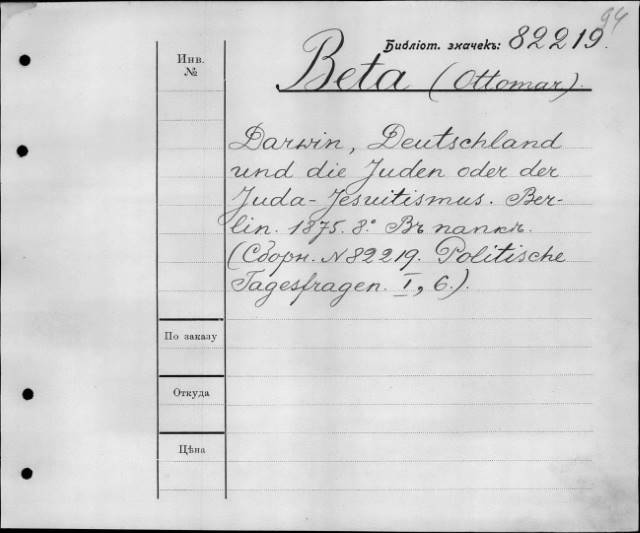 94
Библіот. значекъ: 82219.
Инв. №
Beta (Ottomar).
Darwin, Deutschland
und die Juden oder der
Juda-Jesuitismus. Ber-
lin. 1875. 8.° Въ папкѣ.
(Сборн. N 82219. Politische
Tagesfragen. I, 6.).
По заказу
Откуда
Цѣна